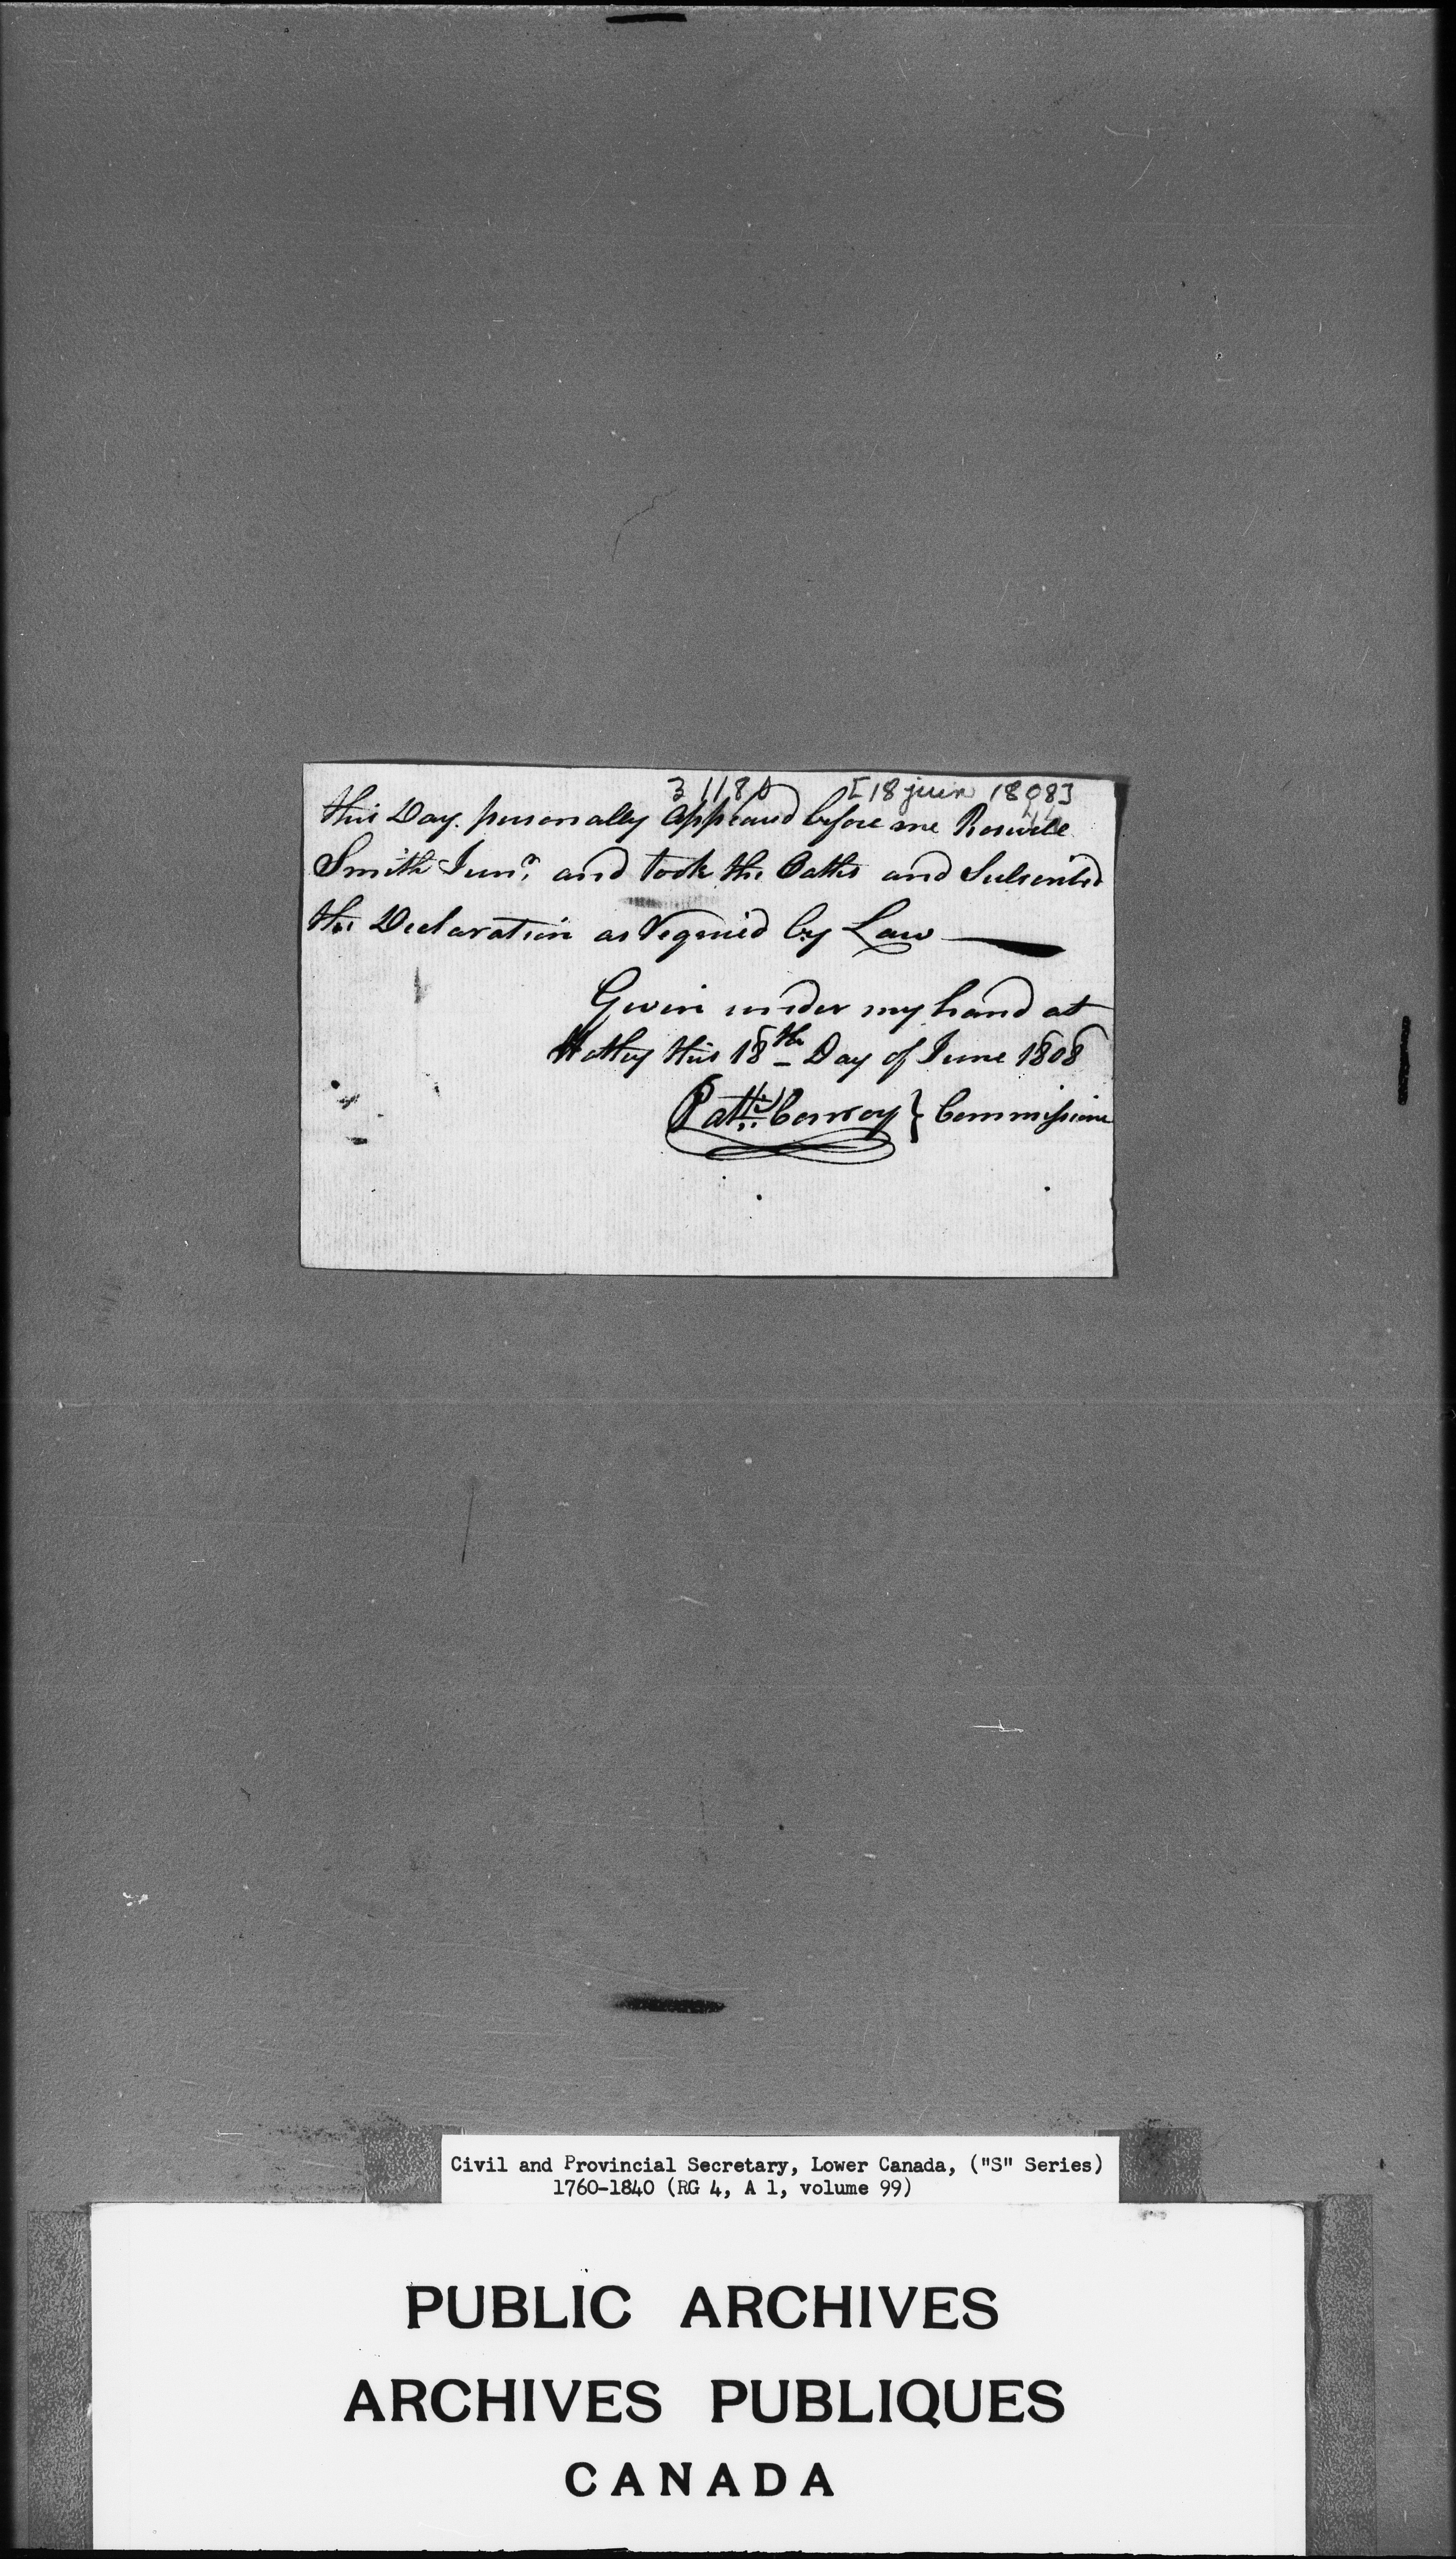 31180 [18 juin 1808]
this Day personally Appeared before me Roswell
Smith Junr. and took the Oaths and Subscribed
the Declaration as Required by Law
Given under my hand at
Hatley this 18th Day of June 1808
Patk. Conroy } Commissioner
Civil and Provincial Secretary, Lower Canada, ("S" Series)
1760-1840 (RG 4, A 1, volume 99)
PUBLIC ARCHIVES
ARCHIVES PUBLIQUES
CANADA